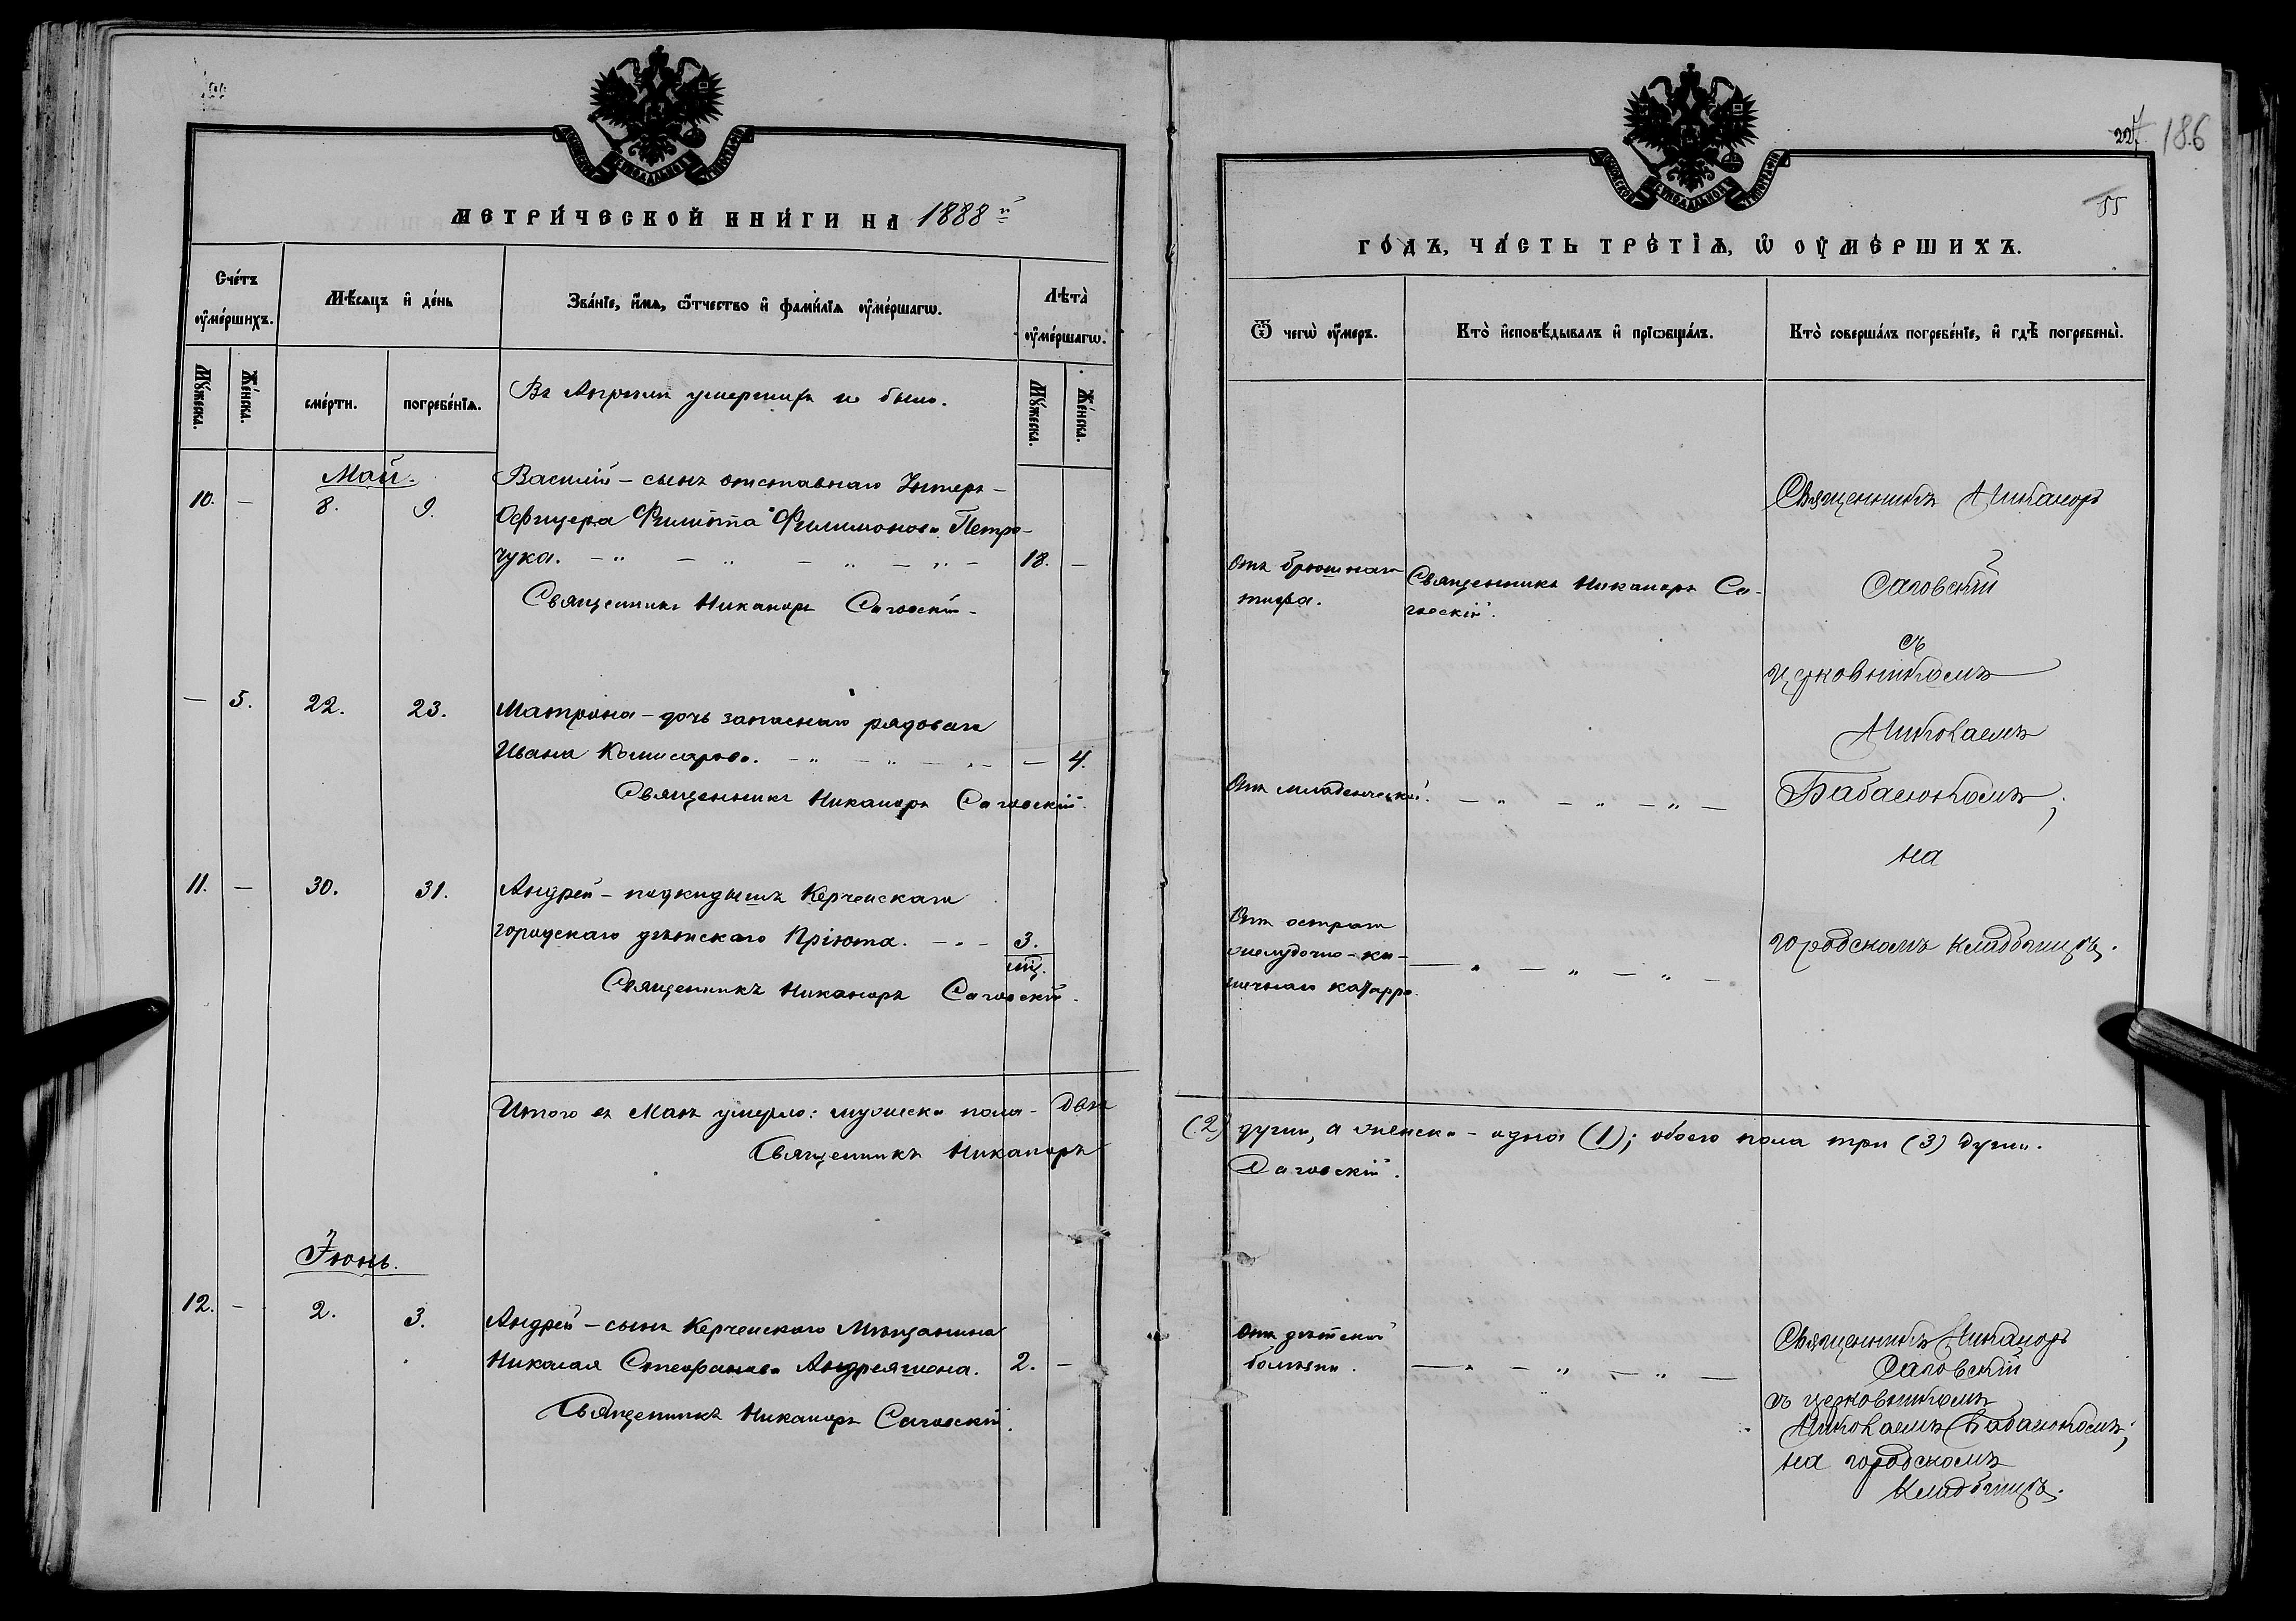 МЕТРИЧЕСКОЙ КНИГИ НА 1888й
Счетъ умершихъ.
Мѣсяцъ и день
Званіе, имя, отчество и фамилія умершагѡ.
Лѣта умершагѡ.
Мужеска.
Женска.
смерти.
погребенія.
Мужеска.
Женска.
Въ Апрѣлѣ умершихъ не было.
Май.
10. – 8. 9. Василій – сынъ отставнаго Унтеръ-
Офицера Филиппа Филимонова Петро-
чука. 18. –
Священникъ Никаноръ Саговскій.
– 5. 22. 23. Матрона – дочь запаснаго рядоваго
Ивана Комисарова. – 4.
Священникъ Никаноръ Саговскій.
11. – 30. 31. Андрей – подкидышъ Керченскаго
городскаго дѣтскаго Пріюта. 3.
мѣ.
Священникъ Никаноръ Саговскій.
Итого въ Маѣ умерло: мужеска пола – двѣ
Священникъ Никаноръ
Іюнь.
12. – 2. 3. Андрей – сынъ Керченскаго Мѣщанина
Николая Стефанова Андреяшена. 2. –
Священникъ Никаноръ Саговскій.
227. 186
55
ГОДЪ, ЧАСТЬ ТРЕТІѦ, Ѡ ОУМЕРШИХЪ.
Ѿ чегѡ умеръ.
Кто исповѣдывалъ и пріѡбщалъ.
Кто совершалъ погребеніе, и гдѣ погребены.
Отъ брюшнаго
тифа.
Священникъ Никаноръ Са-
говскій.
Священникъ Никаноръ
Саговскій
съ
церковникомъ
Николаемъ
Бабасюкомъ;
на
городскомъ кладбищѣ.
Отъ младенческой.
Отъ остраго
желудочно-ки-
шечнаго катарра.
(2) души, а женска – одна (1); обоего пола три (3) души.
Саговскій.
Отъ дѣтской
болѣзни.
Священникъ Никаноръ
Саговскій
съ церковникомъ
Николаемъ Бабасюкомъ;
на городскомъ
кладбищѣ.